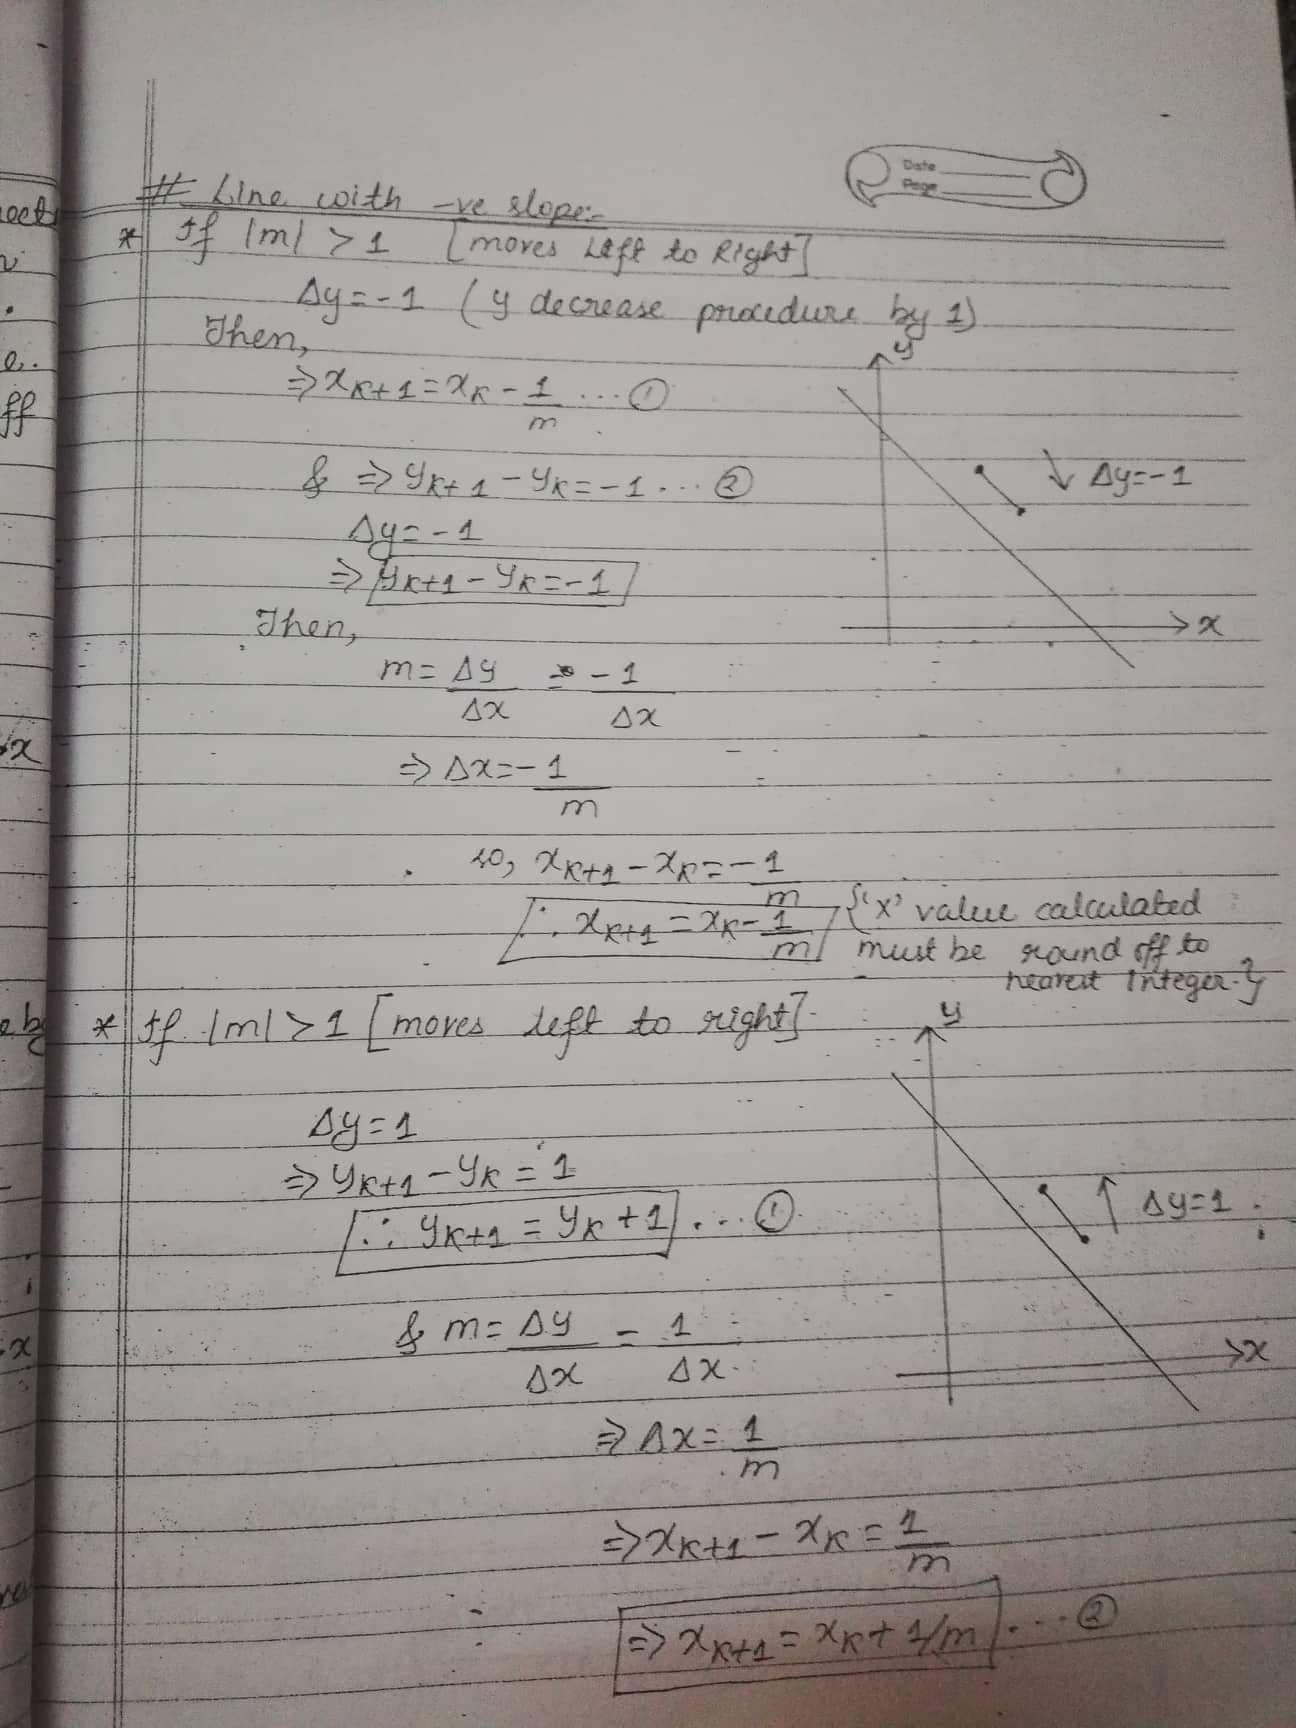 Date
Page
# Line with -ve slope:-
* If |m| > 1 [moves Left to Right]
Δy = -1 (y decrease procedure by 1)
Then,
⇒ x_{K+1} = x_K - 1/m ... ①
& ⇒ y_{K+1} - y_K = -1 ... ②
Δy = -1
⇒ y_{K+1} - y_K = -1
Then,
m = Δy/Δx = -1/Δx
⇒ Δx = -1/m
so, x_{K+1} - x_K = -1/m
∴ x_{K+1} = x_K - 1/m {'x' value calculated
must be round off to
nearest Integer.}
y
↓ Δy = -1
x
* If |m| > 1 [moves left to right]
Δy = 1
⇒ y_{K+1} - y_K = 1
∴ y_{K+1} = y_K + 1 ... ①
& m = Δy/Δx = 1/Δx
⇒ Δx = 1/m
⇒ x_{K+1} - x_K = 1/m
⇒ x_{K+1} = x_K + 1/m ... ②
y
↑ Δy = 1
x